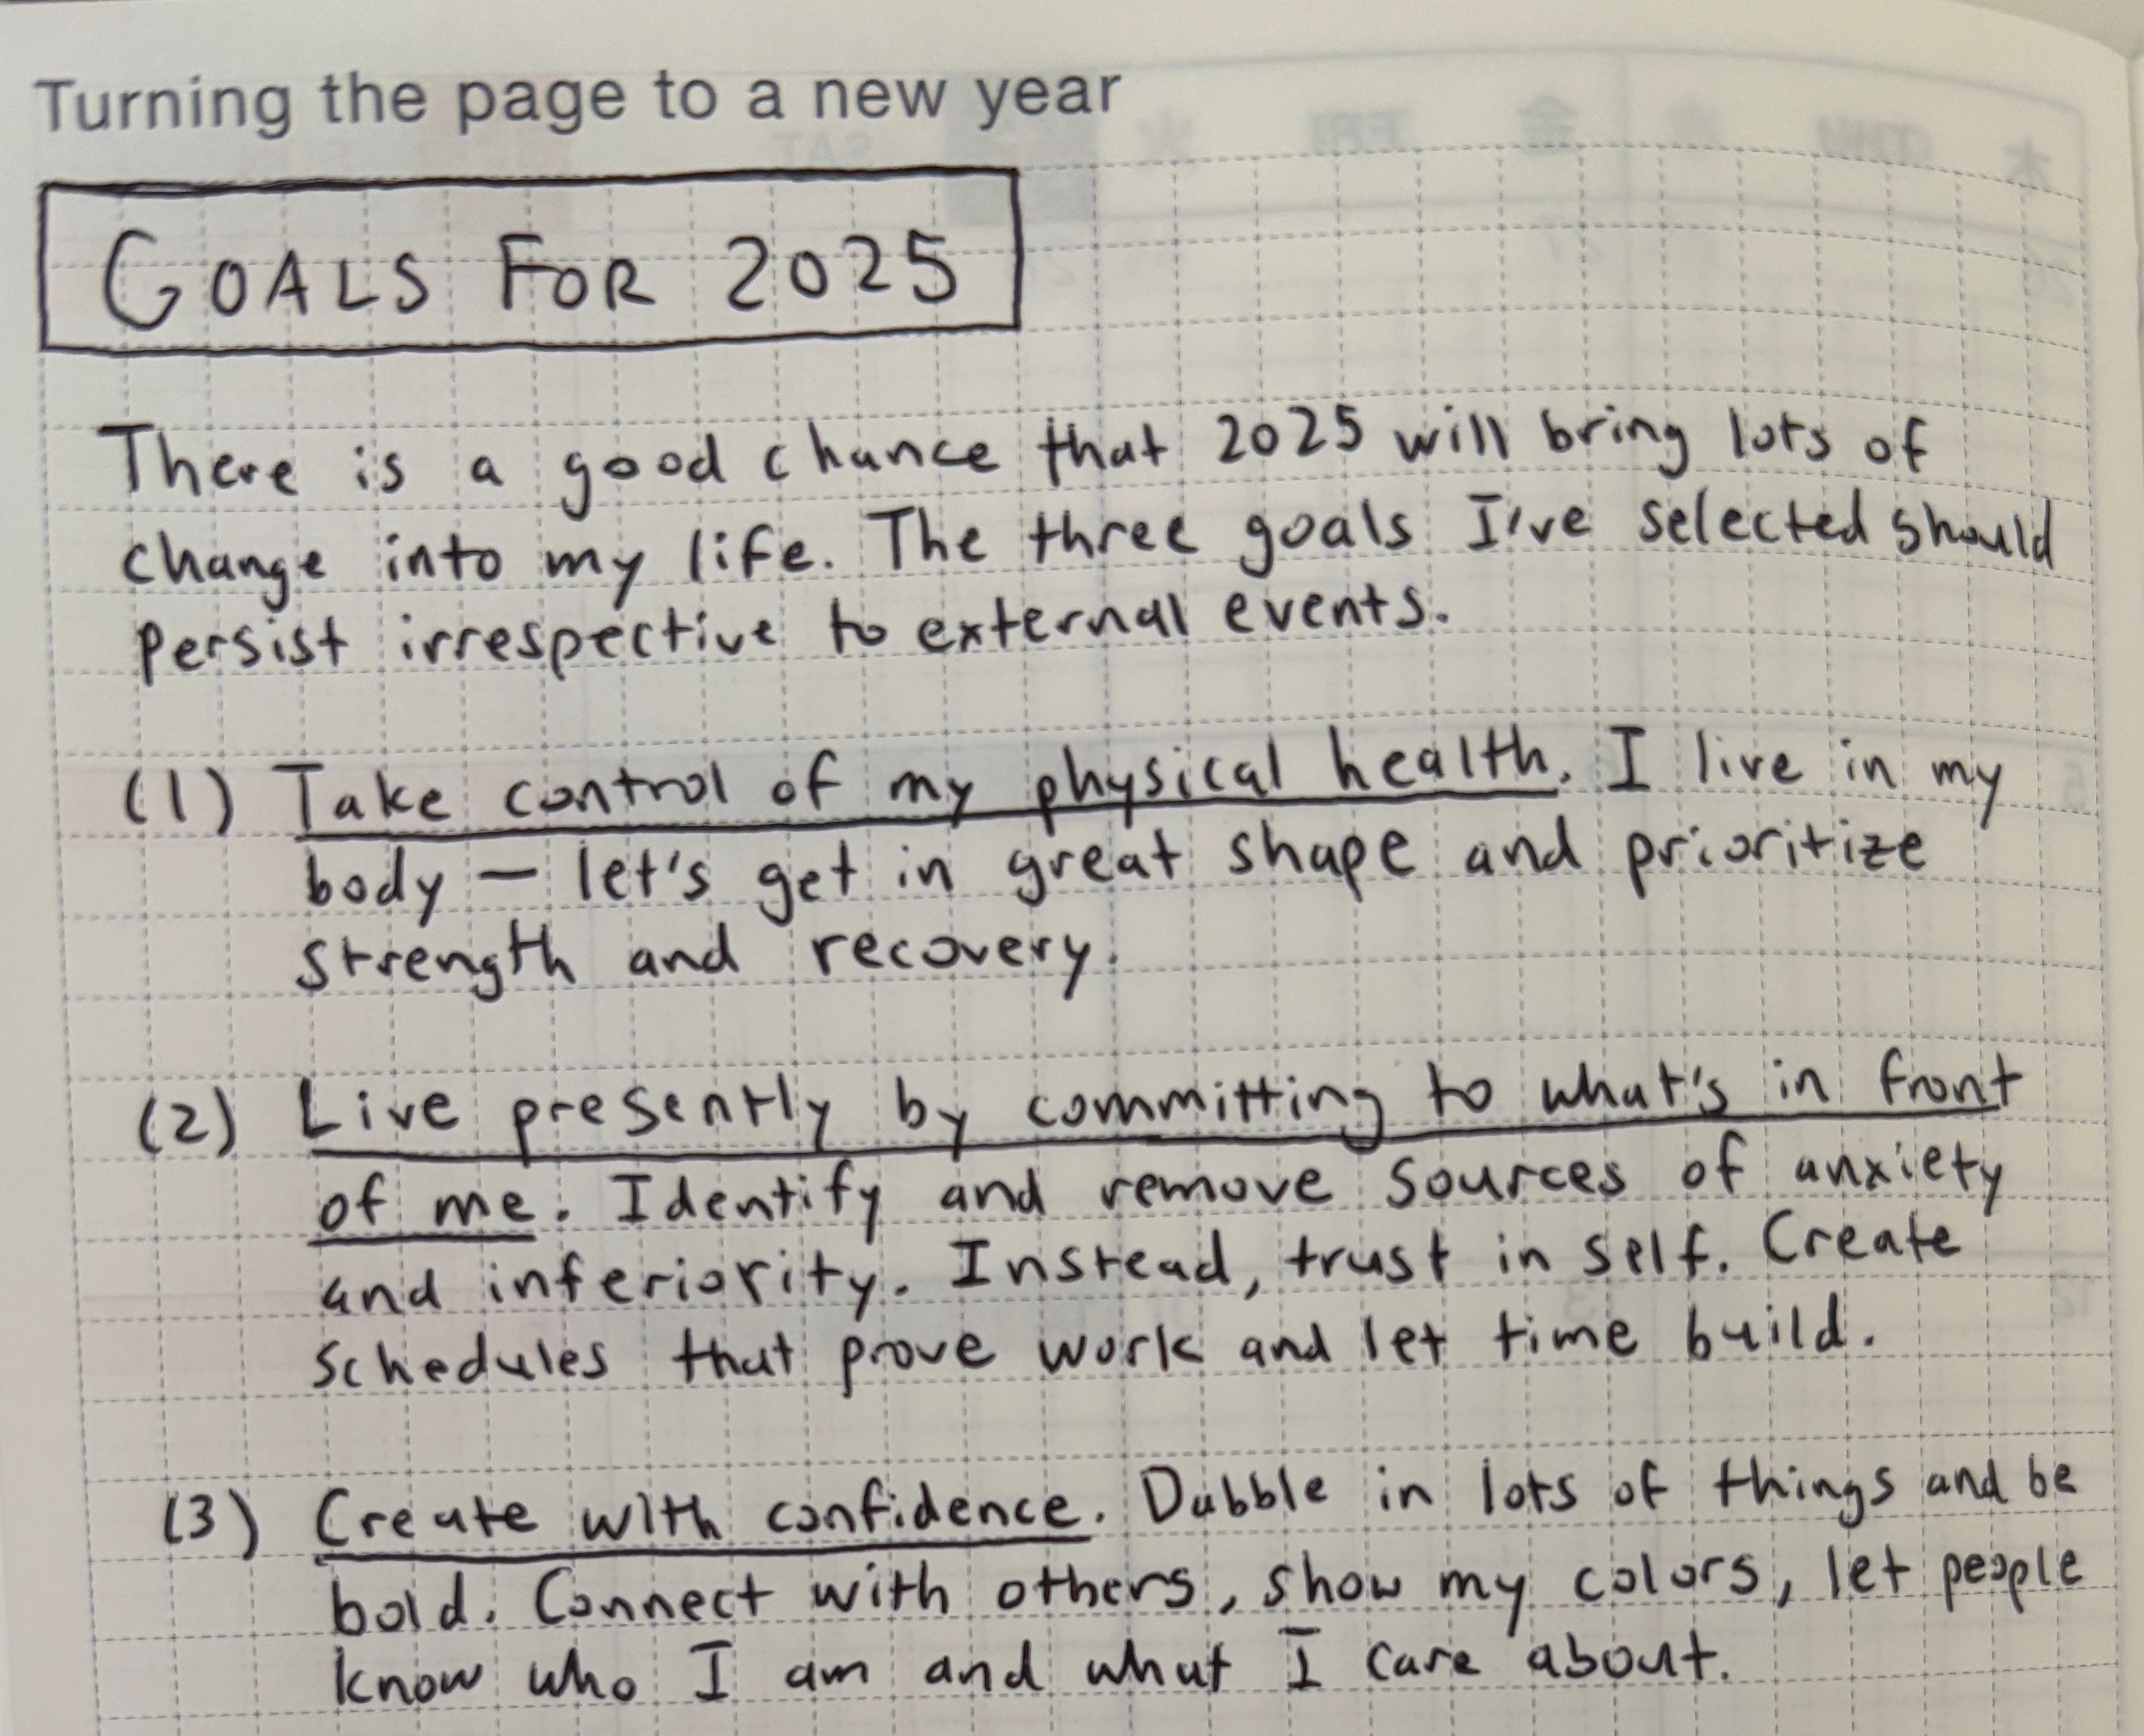 Turning the page to a new year
GOALS FOR 2025
There is a good chance that 2025 will bring lots of
change into my life. The three goals I've selected should
persist irrespective to external events.
(1) Take control of my physical health. I live in my
body — let's get in great shape and prioritize
strength and recovery.
(2) Live presently by committing to what's in front
of me. Identify and remove sources of anxiety
and inferiority. Instead, trust in self. Create
schedules that prove work and let time build.
(3) Create with confidence. Dabble in lots of things and be
bold. Connect with others, show my colors, let people
know who I am and what I care about.